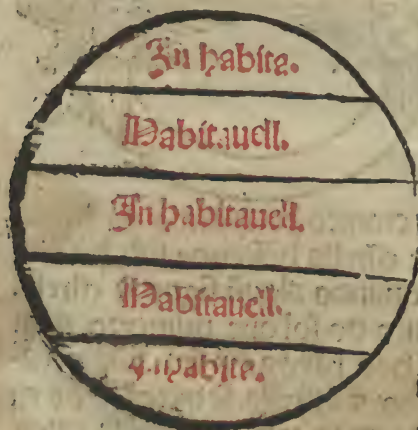 In habite.
Habitauell.
In habitauell.
Habitauell.
habite.